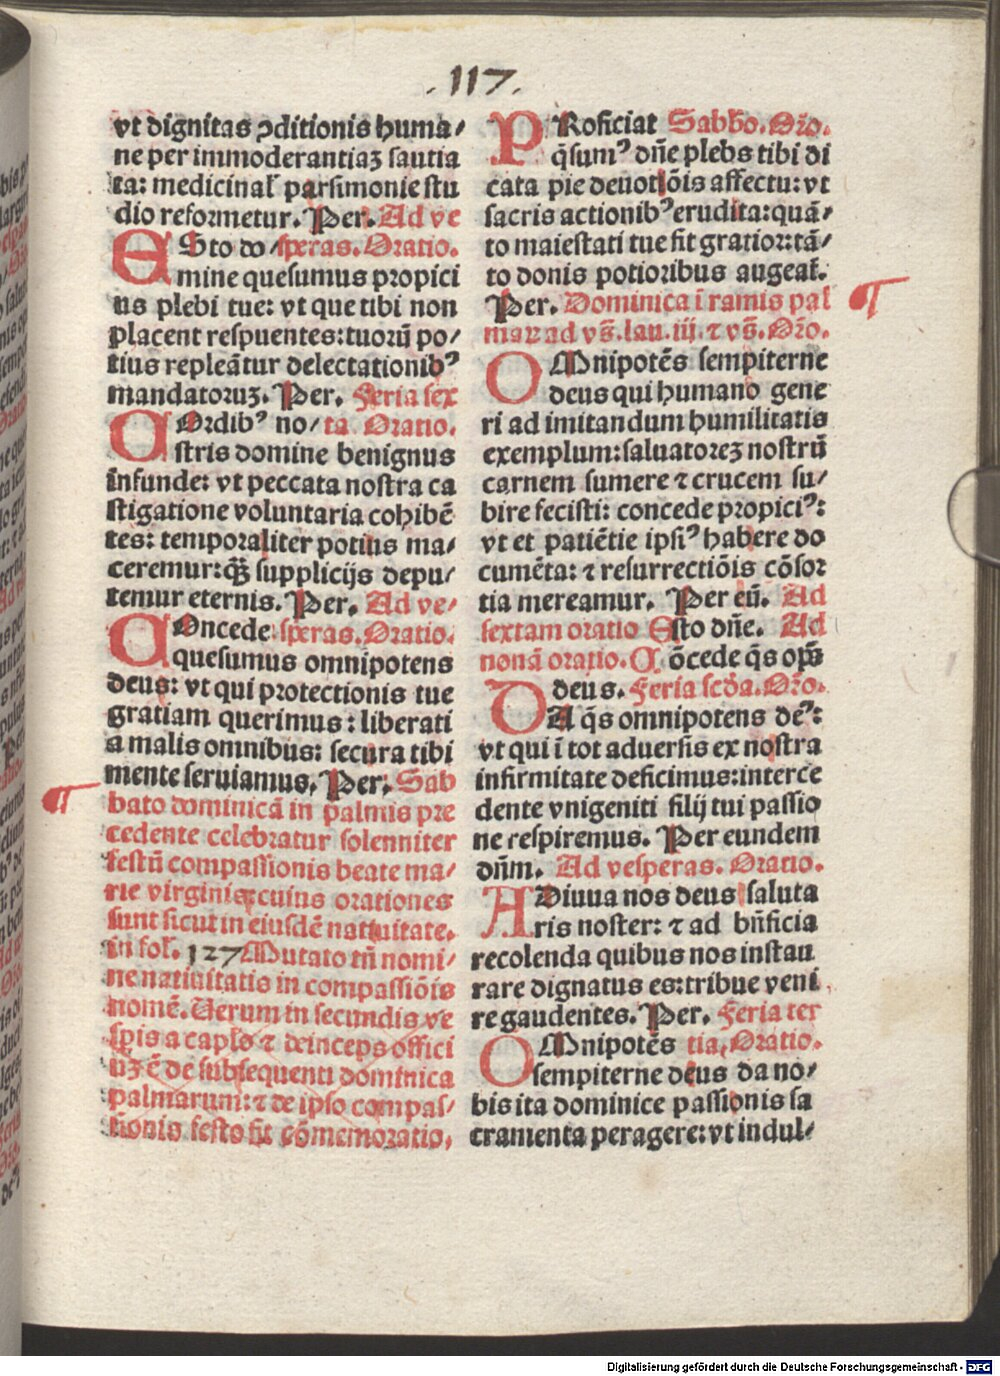 .117.
vt dignitas ↄditionis huma⸗
ne per immoderantiaʒ sautia
ta: medicinal᷑ parsimonie stu
dio reformetur. Per. Ad ve
ESto do⸗ speras. Oratio.
mine quesumus propici
us plebi tue: vt que tibi non
placent respuentes: tuorū po⸗
tius repleātur delectationibꝰ
mandatoruʒ. Per. Feria sex
COrdibꝰ no⸗ ta Oratio.
stris domine benignus
infunde: vt peccata nostra ca
stigatione voluntaria cohibē
tes: temporaliter potius ma⸗
ceremur: q̄ʒ supplicijs depu⸗
temur eternis. Per. Ad ve⸗
COncede speras. Oratio.
quesumus omnipotens
deus: vt qui protectionis tue
gratiam querimus: liberati
a malis omnibus: secura tibi
mente seruiamus. Per. Sab
bato dominicā in palmis pre
cedente celebratur solenniter
festū compassionis beate ma⸗
rie virginis cuius orationes
sunt sicut in eiusdē natiuitate.
in fol. 127 Mutato tñ nomi⸗
ne natiuitatis in compassiōis
nomē. Uerum in secundis ve
spis a caplo ⁊ deinceps offici
ūʒ ē de subsequenti dominica
palmarum: ⁊ de ipso compas⸗
sionis festo fit cōmemoratio.
PRoficiat Sabbo. Oro.
q̄sumꝰ dñe plebs tibi di
cata pie deuotiōis affectu: vt
sacris actionibꝰ erudita: quā⸗
to maiestati tue fit gratior: tā⸗
to donis potioribus augeat᷑.
Per. Dominica ī ramis pal
maꝝ ad vs̄. lau. iij. ⁊ vs̄. Oro.
OMnipotēs sempiterne
deus qui humano gene
ri ad imitandum humilitatis
exemplum: saluatoreʒ nostrū
carnem sumere ⁊ crucem su⸗
bire fecisti: concede propiciꝰ:
vt et patiētie ipsiꝰ habere do
cumēta: ⁊ resurrectiōis cōsor
tia mereamur. Per eū. Ad
sextam oratio Esto dñe. Ad
nonā oratio. Cōcede q̄s op̄s
deus. Feria scḋa. Oro.
DA q̄s omnipotens deꝰ:
vt qui ī tot aduersis ex nostra
infirmitate deficimus: interce
dente vnigeniti filij tui passio
ne respiremus. Per eundem
dñm. Ad vesperas. Oratio.
ADiuua nos deus saluta
ris noster: ⁊ ad bñficia
recolenda quibus nos instau
rare dignatus es: tribue veni
re gaudentes. Per. Feria ter
OMnipotēs tia. Oratio.
sempiterne deus da no⸗
bis ita dominice passionis sa
cramenta peragere: vt indul⸗
Digitalisierung gefördert durch die Deutsche Forschungsgemeinschaft - DFG